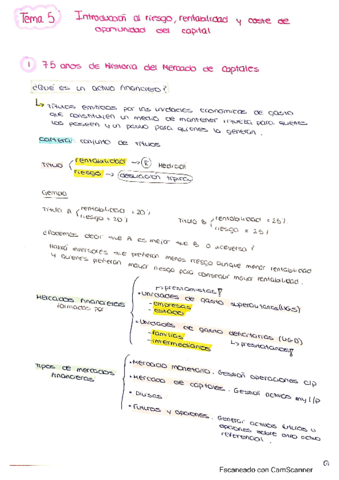 Tema 5 Introducción al riesgo, rentabilidad y coste de
oportunidad del capital
1 75 años de historia del Mercado de capitales
¿Qué es un activo financiero?
↳ Títulos emitidos por las unidades económicas de gasto
que constituyen un medio de mantener riqueza para quienes
los poseen y un pasivo para quienes la generan.
Cartera: conjunto de títulos
Título { rentabilidad → Medición
riesgo → desviación típica
Ejemplo
Título A { rentabilidad = 20%
riesgo = 20%
Título B { rentabilidad = 25%
riesgo = 25%
¿Podemos decir que A es mejor que B o viceversa?
Habrá inversores que prefieran menos riesgo aunque menor rentabilidad
y quienes prefieran mayor riesgo para conseguir mayor rentabilidad.
Mercados financieros
formados por
↳ prestamistas
• Unidades de gasto superavitarias (UGS)
- empresas
- estado
• Unidades de gasto deficitarias (UGD)
- familias
↳ prestatarios
- intermediarios
Tipos de mercados
financieros
• Mercado monetario. Gestión operaciones c/p
• Mercado de capitales. Gestión activos m y l/p
• Divisas
• Futuros y opciones. Generar activos futuros u
opciones sobre otro activo
referencial.
Escaneado con CamScanner